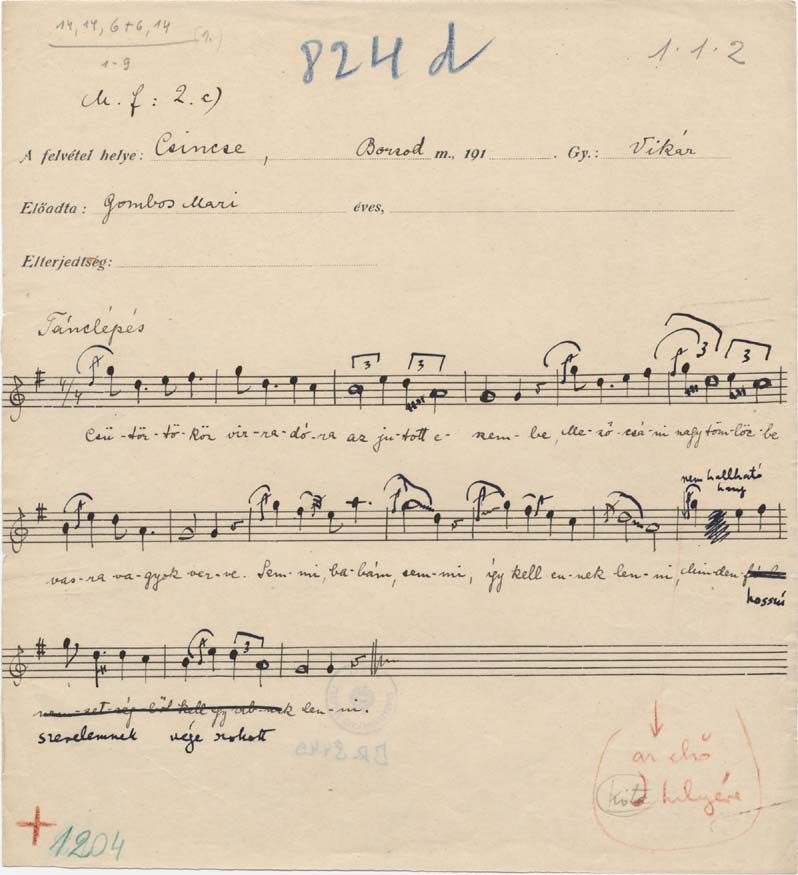 14, 14, 6+6, 14 (2.)
1-9
824 d
1·1·2
M. f: 2. c)
A felvétel helye: Csincse, Borsod m., 191 . Gy.: Vikár
Előadta: Gombos Mari éves,
Elterjedtség:
Tánclépés
4/4 3 3 3 3
Csü-tör-tö-kör vir-ra-dó-ra az ju-tott e-nem-be, Me-ző-csá-ni nagy töm-löz-be
nem hallható
hang
vas-ra va-gyok ver-ve. Sem-mi, ba-bám, sem-mi, így kell en-nek len-ni, Min-den
hosszú
3
nem-zet-ség-ből kell len-ni.
szerelemnek vége szokott
BR 8446
az első
kóta helyére
+ 1204